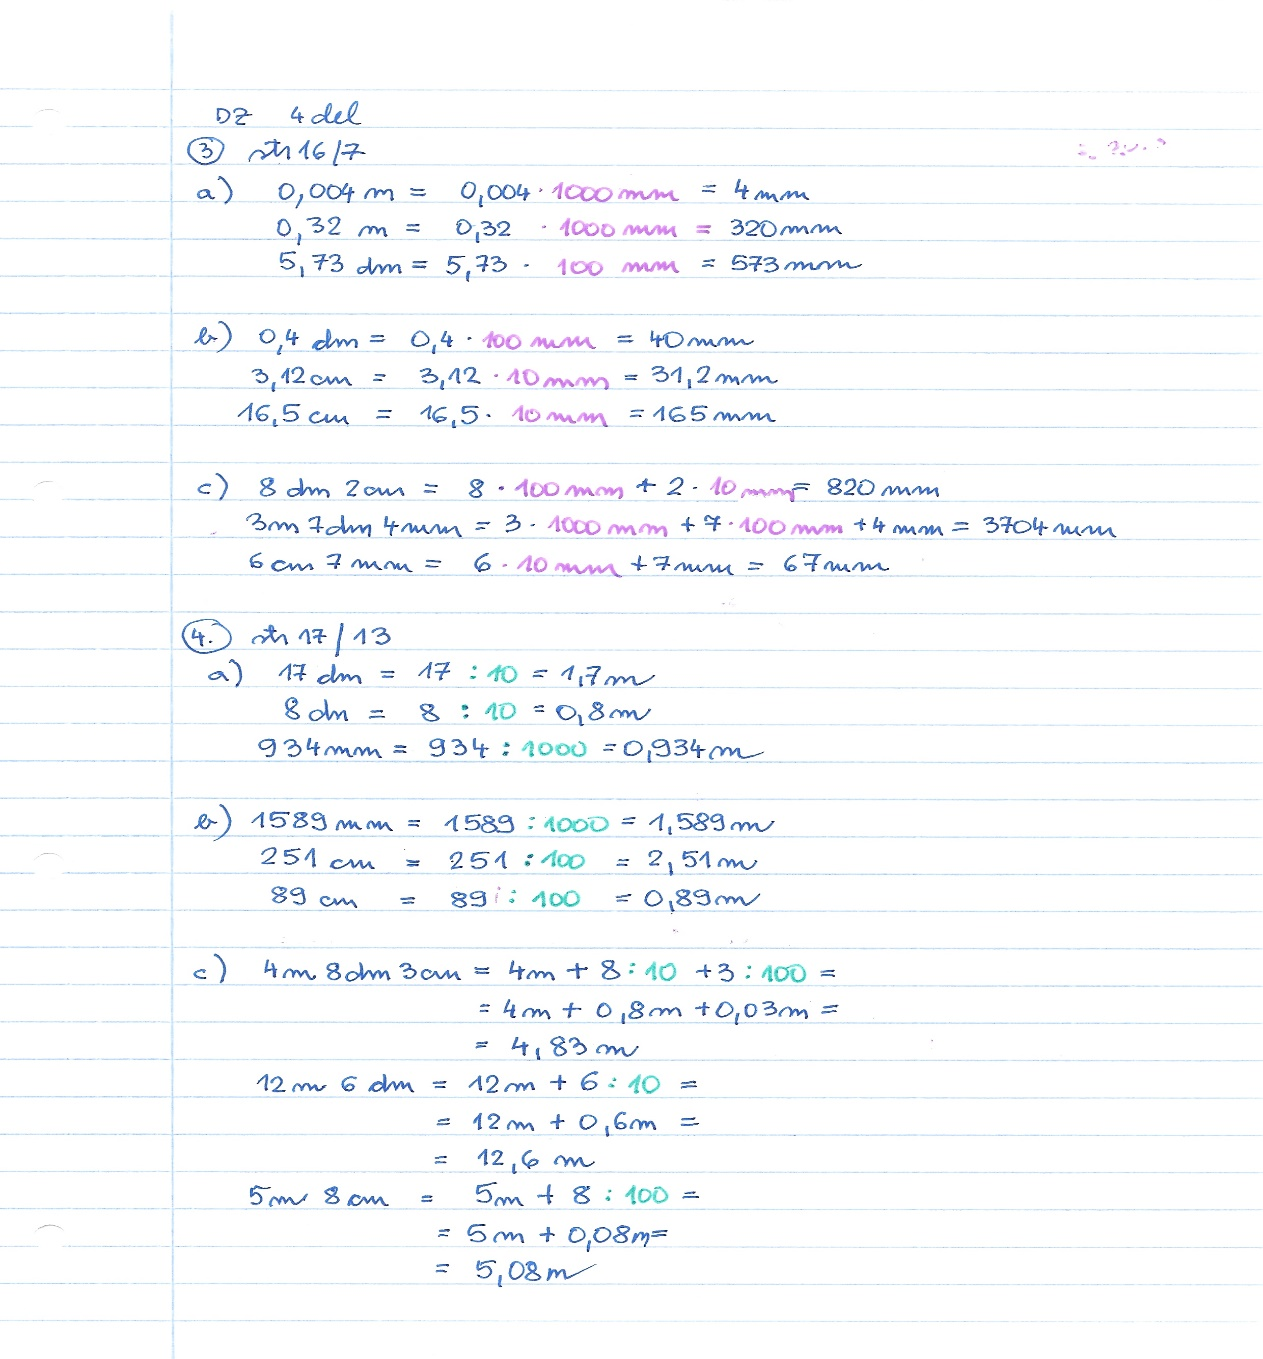 DZ 4 del
③ str 16/7
a) 0,004 m = 0,004 · 1000 mm = 4 mm
0,32 m = 0,32 · 1000 mm = 320 mm
5,73 dm = 5,73 · 100 mm = 573 mm
b) 0,4 dm = 0,4 · 100 mm = 40 mm
3,12 cm = 3,12 · 10 mm = 31,2 mm
16,5 cm = 16,5 · 10 mm = 165 mm
c) 8 dm 2 cm = 8 · 100 mm + 2 · 10 mm = 820 mm
3 m 7 dm 4 mm = 3 · 1000 mm + 7 · 100 mm + 4 mm = 3704 mm
6 cm 7 mm = 6 · 10 mm + 7 mm = 67 mm
4. str 17/13
a) 17 dm = 17 : 10 = 1,7 m
8 dm = 8 : 10 = 0,8 m
934 mm = 934 : 1000 = 0,934 m
b) 1589 mm = 1589 : 1000 = 1,589 m
251 cm = 251 : 100 = 2,51 m
89 cm = 89 : 100 = 0,89 m
c) 4 m 8 dm 3 cm = 4 m + 8 : 10 + 3 : 100 =
= 4 m + 0,8 m + 0,03 m =
= 4,83 m
12 m 6 dm = 12 m + 6 : 10 =
= 12 m + 0,6 m =
= 12,6 m
5 m 8 cm = 5 m + 8 : 100 =
= 5 m + 0,08 m =
= 5,08 m